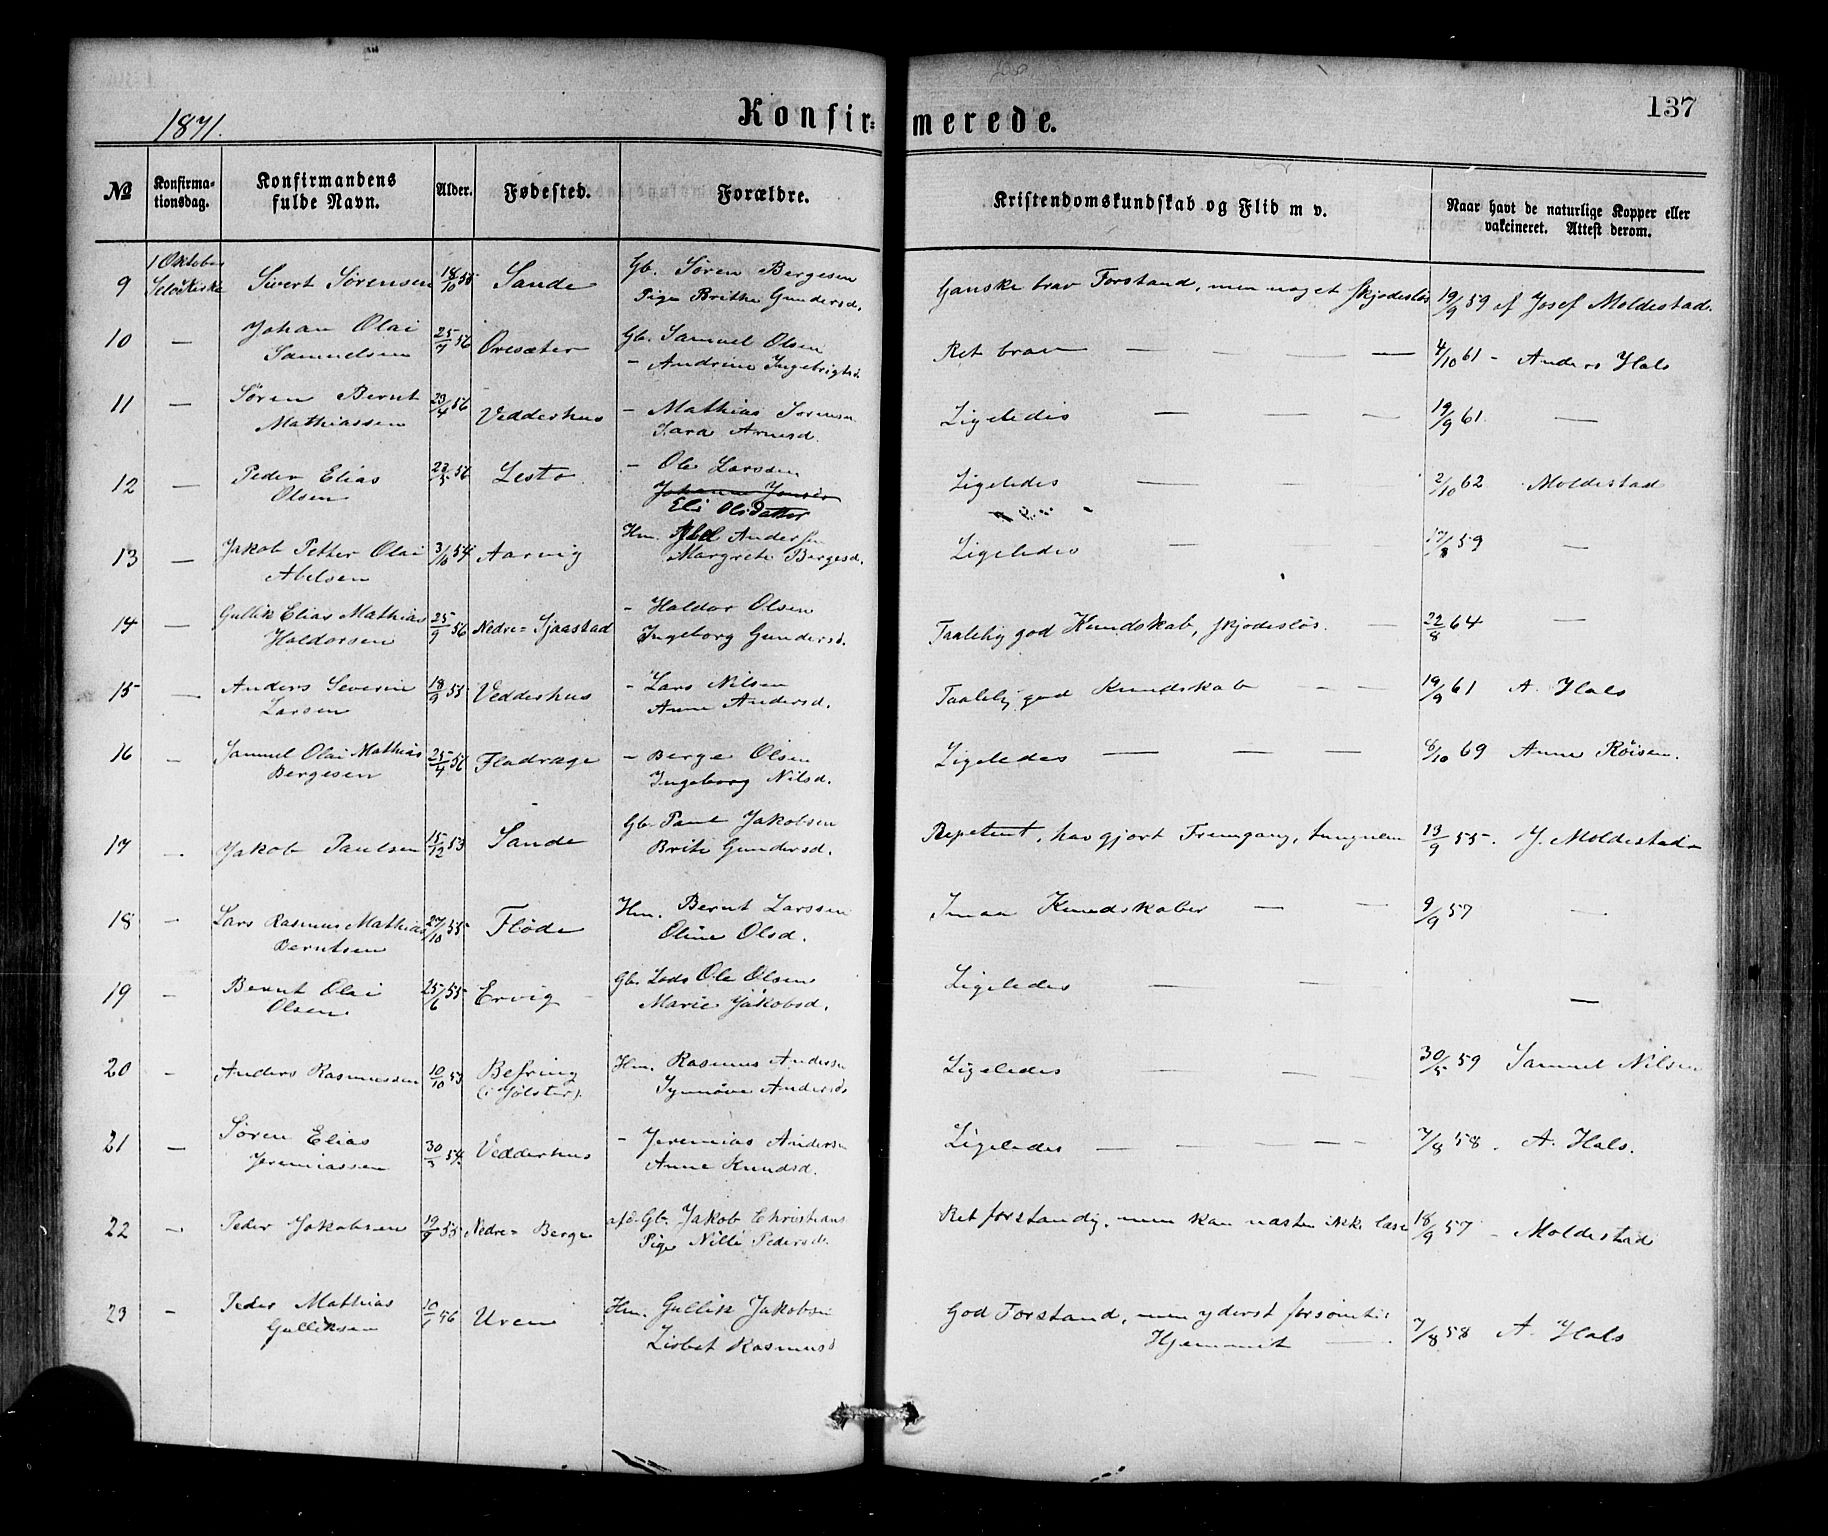 1871.
Konfir-merede.
137
No
Konfirma-tionsdag.
Konfirmandens fulde Navn.
Alder.
Fødested.
Forældre.
Kristendomskundskab og Flid m v.
Naar havt de naturlige Kopper eller vakcineret. Attest derom.
9 1 Oktober Selø Kirke Sivert Sørensen 18/10 55 Sande Gb. Søren Bergesen Ganske brav Forstand, men noget skjødesløs 19/9 59 af Josef Moldestad.
Pige Brithe Gundersd.
10 — Johan Olai 25/7 56 Oresæter Gb. Samuel Olsen Ret brav — — — 4/10 61 - Anders Hals
Samuelsen - Andrine Ingebrigtsd.
11 — Søren Bernt 23/4 56 Vedderhus - Mathias Sørensen Ligeledes — — — 19/9 61. —
Mathiassen Kara Arnesd.
12 — Peder Elias 23/5 56 Lesto - Ole Larssen Ligeledes — — — 2/10 62 Moldestad
Olsen Johanne Jonsd.
Eli Olsdatter
13 — Jakob Petter Olai 3/10 54 Aarvig Hm. Abel Andersen Ligeledes — — 17/8 59 —
Abelsen Margrete Bergesd.
14 — Gullik Elias Mathias 25/9 56 Nedre=Sjaastad - Haldor Olsen Taalelig god Kundskab, skjødesløs. — 22/8 64 —
Haldorsen Ingeborg Gundersd.
15 — Anders Severin 18/9 55 Vedderhus - Lars Nilsen Taalelig god Kundskab — — 19/9 61 A. Hals
Larsen Anne Andersd.
16 — Samuel Olai Mathias 25/4 56 Fladræge - Berge Olsen Ligeledes — — — 6/10 69 Anne Røisen.
Bergesen Ingeborg Nilsd.
17 — Jakob Paulsen 15/12 53 Sande Gb. Paul Jakobsen Repetent, har gjort Fremgang, tungnem 13/9 55. J. Moldestad
Brite Gundersd.
18 - Lars Rasmus Mathias 27/10 55 Fløde Hm. Bernt Larssen Smaa Kundskaber — — 9/9 57 —
Berntsen Oline Olsd.
19 - Bernt Olai 25/6 55 Ervig - Gb. Lods Ole Olsen Ligeledes — — —
Olsen. Marie Jakobsd.
20 - Anders Rasmussen 10/10 53 Befring Hm. Rasmus Andersen Ligeledes — — — 30/5 59 Samuel Nilsen
(i Jølster). Synnøve Andersd.
21 — Søren Elias 30/3 54. Vedderhus - Jeremias Andersen Ligeledes — — — — 7/8 58. A. Hals.
Jeremiassen Anne Knudsd.
22 — Peder Jakobsen 19/9 55 Nedre= Berge afd. Gb. Jakob Christians. Ret forstandig, men kan næsten ikke læse 18/9 57 - Moldestad
Pige Nille Pedersd.
23 - Peder Mathias 10/1 56 Uren Hm. Gullik Jakobsen God Forstand, men yderst forsømt i 7/8 58 A. Hals
Gulliksen Lisbet Rasmusd Hjemmet —